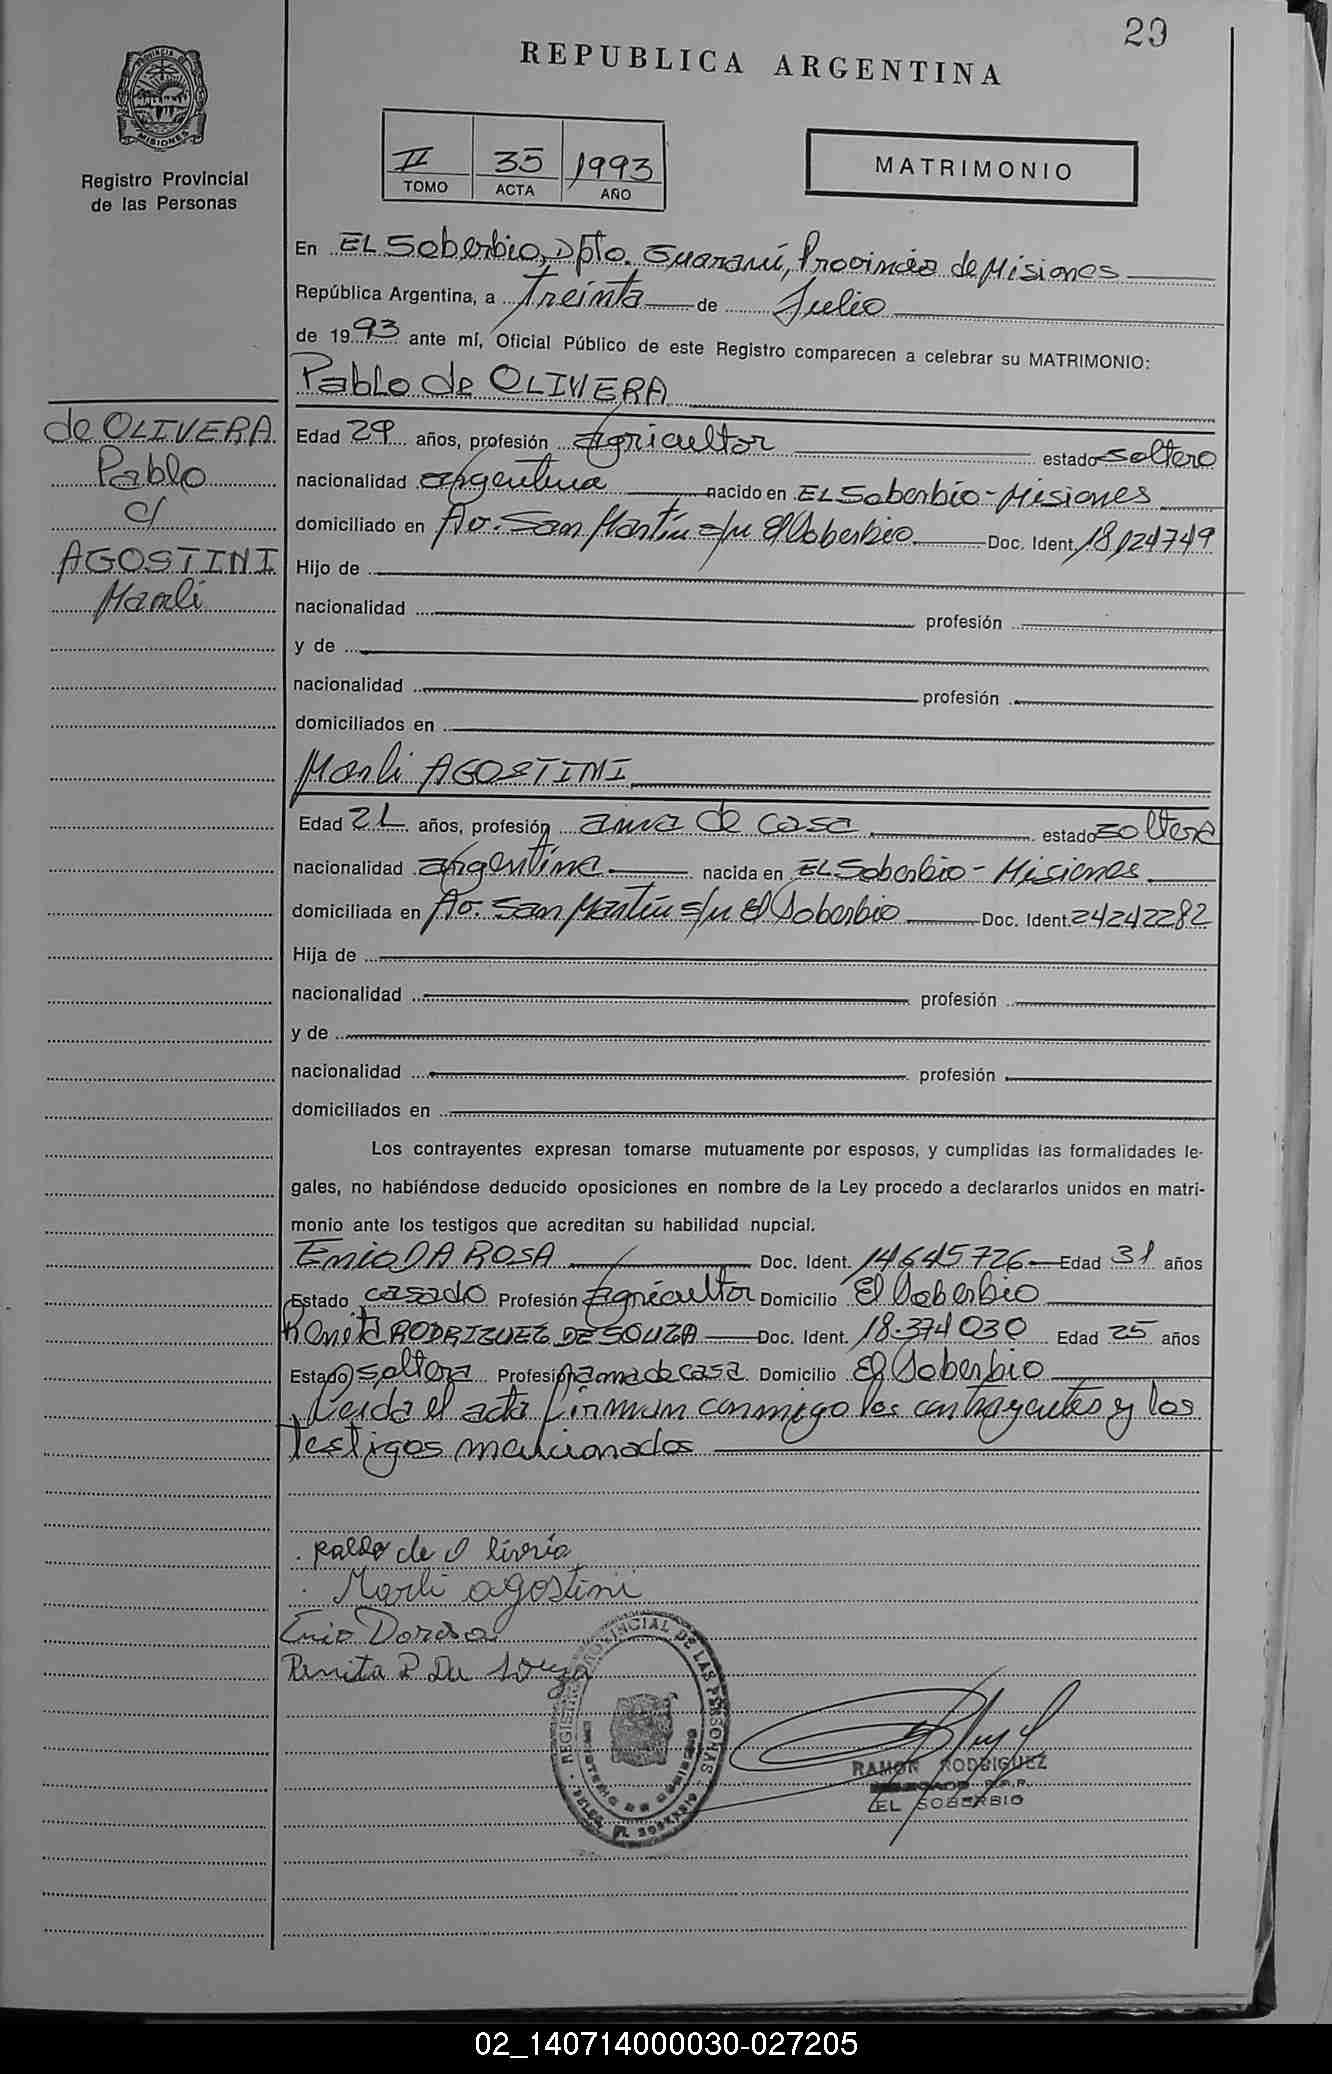 29
REPUBLICA ARGENTINA
PROVINCIA DE
MISIONES
Registro Provincial
de las Personas
II 35 1993
TOMO ACTA AÑO
MATRIMONIO
En EL Soberbio, Dpto. Guaraní, Provincia de Misiones
República Argentina, a Treinta de Julio
de 1993 ante mí, Oficial Público de este Registro comparecen a celebrar su MATRIMONIO:
Pablo de OLIVERA
de OLIVERA
Pablo
c/
AGOSTINI
Marli
Edad 29 años, profesión agricultor estado soltero
nacionalidad argentina nacido en EL Soberbio - Misiones
domiciliado en Av. San Martín s/n El Soberbio Doc. Ident. 18124749
Hijo de
nacionalidad profesión
y de
nacionalidad profesión
domiciliados en
Marli AGOSTINI
Edad 21 años, profesión ama de casa estado soltera
nacionalidad argentina nacida en EL Soberbio - Misiones
domiciliada en Av. San Martín s/n El Soberbio Doc. Ident. 24242282
Hija de
nacionalidad profesión
y de
nacionalidad profesión
domiciliados en
Los contrayentes expresan tomarse mutuamente por esposos, y cumplidas las formalidades le-
gales, no habiéndose deducido oposiciones en nombre de la Ley procedo a declararlos unidos en matri-
monio ante los testigos que acreditan su habilidad nupcial.
Enio DA ROSA Doc. Ident. 14645726 Edad 31 años
Estado casado Profesión agricultor Domicilio El Soberbio
RODRIGUEZ DE SOUZA Doc. Ident. 18.374030 Edad 25 años
Estado soltera Profesión ama de casa Domicilio El Soberbio
Leida el acta firman conmigo los contrayentes y los
testigos mencionados
Pablo de Oliviria
Marli agostini
Enio Darosa
Renita R De Souza
REGISTRO PROVINCIAL DE LAS PERSONAS
MINISTERIO DE GOBIERNO
DELEG. EL SOBERBIO
RAMON RODRIGUEZ
DELEGADO R.P.P.
EL SOBERBIO
02_140714000030-027205